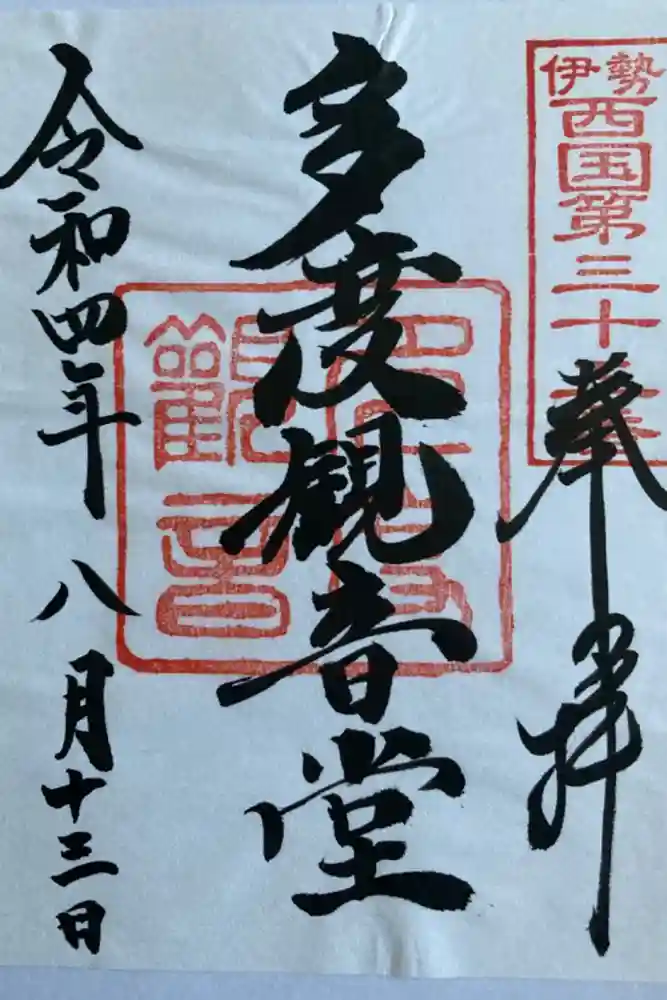 伊勢
西国第三十
奉拝
多度観音堂
観音
令和四年八月十三日